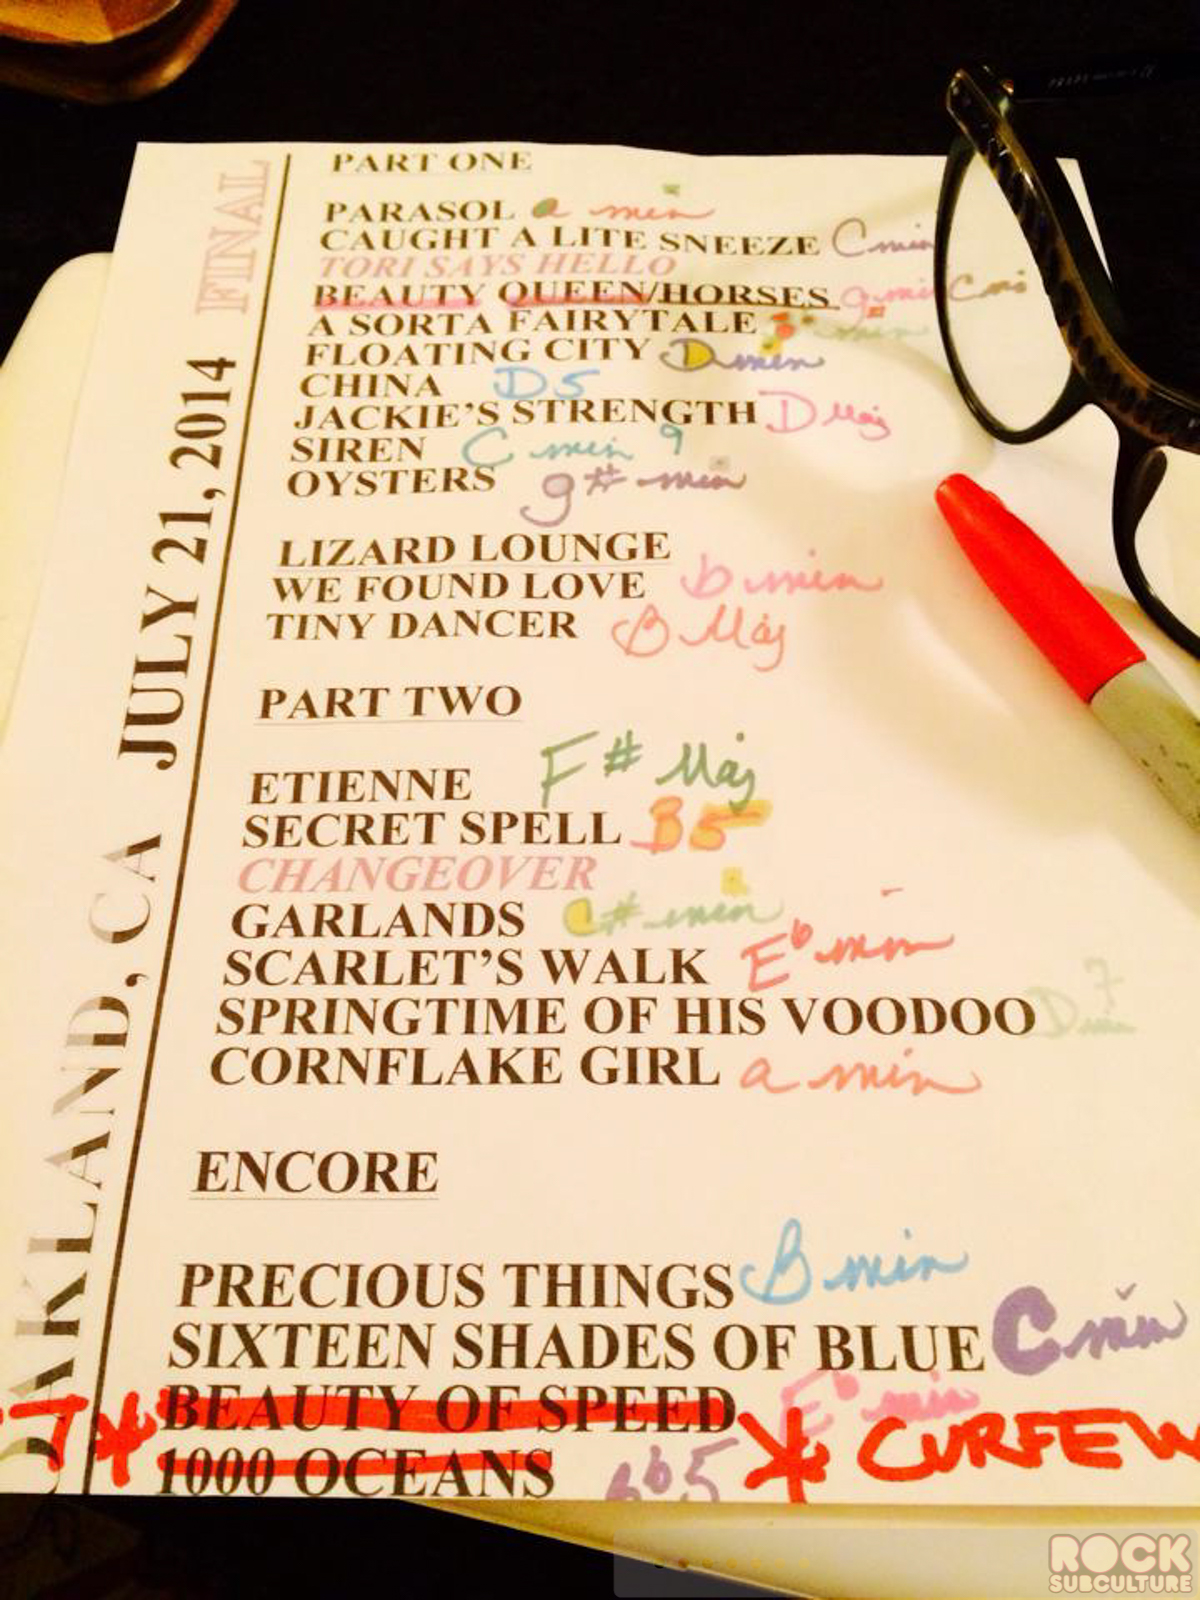 FINAL
OAKLAND, CA JULY 21, 2014
PART ONE
PARASOL a min
CAUGHT A LITE SNEEZE Cmin
TORI SAYS HELLO
BEAUTY QUEEN/HORSES gmin Cmi
A SORTA FAIRYTALE min
FLOATING CITY Dmin
CHINA D5
JACKIE'S STRENGTH D Maj
SIREN C min 9
OYSTERS g# min
LIZARD LOUNGE
WE FOUND LOVE b min
TINY DANCER B Maj
PART TWO
ETIENNE F# Maj
SECRET SPELL B5
CHANGEOVER
GARLANDS C# min
SCARLET'S WALK Eb min
SPRINGTIME OF HIS VOODOO Dmin 7
CORNFLAKE GIRL a min
ENCORE
PRECIOUS THINGS B min
SIXTEEN SHADES OF BLUE Cmin
BEAUTY OF SPEED Eb min
* 1000 OCEANS bb5 * CURFEW
ROCK
SUBCULTURE